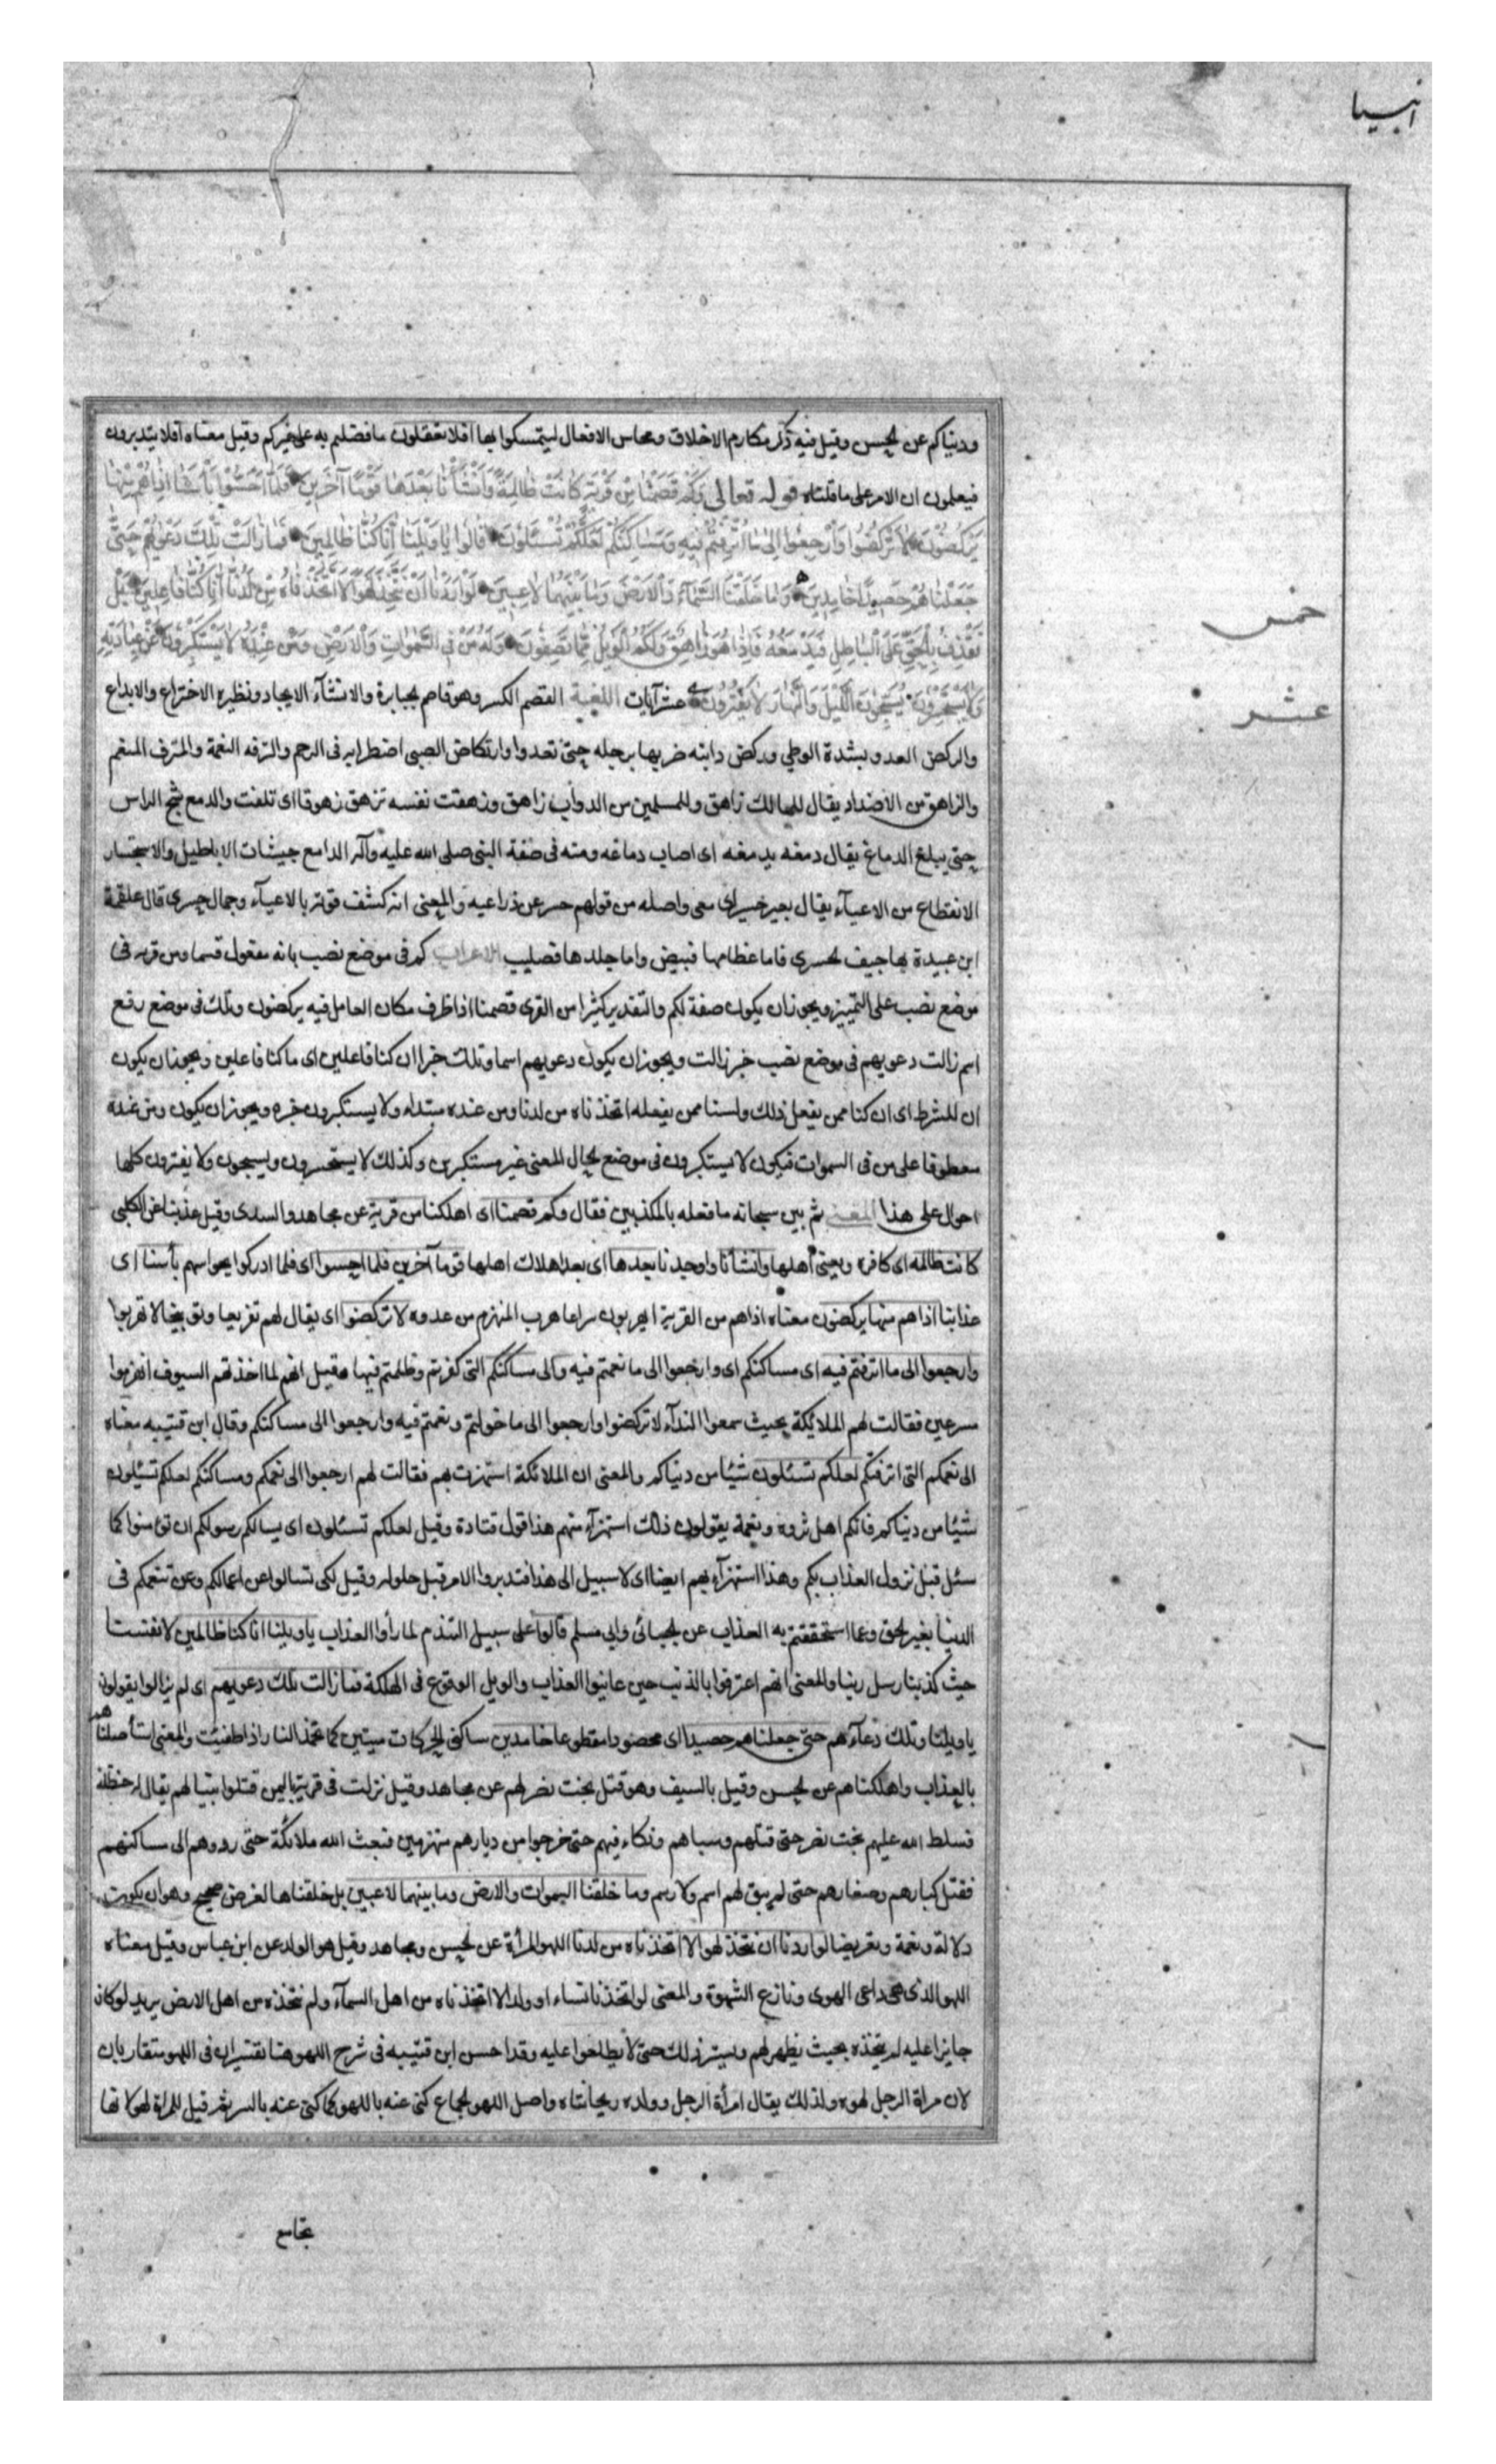 انبيا
ودنياكم عن الحسن وقيل فيه ذكر مكارم الاخلاق ومحاسن الافعال ليتمسكوا بها افلا تعقلون ما فضلتم به على غيركم وقيل معناه افلا يتدبرون
فيعلمون ان الامر على ما قلناه قوله تعالى وَكَمْ قَصَمْنَا مِنْ قَرْيَةٍ كَانَتْ ظَالِمَةً وَأَنْشَأْنَا بَعْدَهَا قَوْمًا آخَرِينَ فَلَمَّا أَحَسُّوا بَأْسَنَا اِذَا هُمْ مِنْهَا
يَرْكُضُونَ لَا تَرْكُضُوا وَارْجِعُوا اِلىٰ مَا اُتْرِفْتُمْ فِيهِ وَمَسَاكِنِكُمْ لَعَلَّكُمْ تُسْئَلُونَ قَالُوا يَا وَيْلَنَا اِنَّا كُنَّا ظَالِمِينَ فَمَا زَالَتْ تِلْكَ دَعْوٰيهُمْ حَتّٰى
جَعَلْنَاهُمْ حَصِيدًا خَامِدِينَ وَمَا خَلَقْنَا السَّمَآءَ وَالْاَرْضَ وَمَا بَيْنَهُمَا لَاعِبِينَ لَوْ اَرَدْنَا اَنْ نَتَّخِذَ لَهْوًا لَا اتَّخَذْنَاهُ مِنْ لَدُنَّا اِنْ كُنَّا فَاعِلِينَ بَلْ
نَقْذِفُ بِالْحَقِّ عَلَى الْبَاطِلِ فَيَدْمَغُهُ فَاِذَا هُوَ زَاهِقٌ وَلَكُمُ الْوَيْلُ مِمَّا تَصِفُونَ وَلَهُ مَنْ فِى السَّمٰوَاتِ وَالْاَرْضِ وَمَنْ عِنْدَهُ لَا يَسْتَكْبِرُونَ عَنْ عِبَادَتِهِ
وَلَا يَسْتَحْسِرُونَ يُسَبِّحُونَ اللَّيْلَ وَالنَّهَارَ لَا يَفْتُرُونَ عشر آيات اللغة القصم الكسر وهو قاصم الجبابرة والانشآء الايجاد ونظيره الاختراع والابداع
والركض العدو بشدة الوطي وركض دابته ضربها برجله حتى تعدوا وارتكاض الصبى اضطرابه فى الرحم والترفه النعمة والمترف المنعم
والزاهق من الاضداد يقال للهالك زاهق وللسمين من الدواب زاهق وزهقت نفسه تزهق زهوقا اى تلفت والدمغ شج الراس
حتى يبلغ الدماغ يقال دمغه يدمغه اى اصاب دماغه ومنه فى صفة النبى صلى الله عليه وآله الدامغ جيشات الاباطيل والاستحسار
الانقطاع من الاعيآء يقال بعير حسير اى معى واصله من قولهم حسر عن ذراعيه والمعنى انه كشف قوته بالاعيآء وجمال حسرى قال علقمة
ابن عبيدة بها جيف الحسرى فاما عظامها فبيض واما جلدها فصليب الاعراب كم فى موضع نصب بانه مفعول قصمنا ومن قرية فى
موضع نصب على التمييز ويجوز ان يكون صفة لكم والتقدير كثيرا من القرى قصمنا اذا ظرف مكان العامل فيه يركضون وتلك فى موضع رفع
اسم زالت دعويهم فى موضع نصب خبر زالت ويجوز ان يكون دعويهم اسما وتلك خبرا ان كنا فاعلين اى ما كنا فاعلين ويجوز ان يكون
ان للشرط اى ان كنا ممن يفعل ذلك ولسنا ممن يفعله اتخذناه من لدنا ومن عنده مبتداء ولا يستكبرون خبره ويجوز ان يكون ومن عنده
معطوفا على من فى السموات فيكون لا يستكبرون فى موضع الحال المعنى غير مستكبرين وكذلك لا يستحسرون ويسبحون ولا يفترون كلها
احوال على هذا المعنى ثم بين سبحانه ما فعله بالمكذبين فقال وكم قصمنا اى اهلكنا من قرية عن مجاهد والسدى وقيل عذبنا عن الكلبى
كانت ظالمة اى كافرة ويعنى اهلها وانشانا واوجدنا بعدها اى بعد اهلاك اهلها قوما آخرين فلما احسوا اى فلما ادركوا بحواسهم بأسنا اى
عذابنا اذا هم منها يركضون معناه اذا هم من القرية يهربون سراعا هرب المنهزم من عدوه لا تركضوا اى يقال لهم تقريعا وتوبيخا لا تهربوا
وارجعوا الى ما اترفتم فيه اى مساكنكم اى وارجعوا الى ما نعمتم فيه والى مساكنكم التى كفرتم وظلمتم فيها وقيل انهم لما اخذتهم السيوف انهزموا
مسرعين فقالت لهم الملائكة بحيث سمعوا الندآء لا تركضوا وارجعوا الى ما خولتم ونعمتم فيه وارجعوا الى مساكنكم وقال ابن قتيبه معناه
الى نعمكم التى اترفتكم لعلكم تسئلون شيئا من دنياكم والمعنى ان الملائكة استهزت بهم فقالت لهم ارجعوا الى نعمكم ومساكنكم لعلكم تسئلون
شيئا من دنياكم فانكم اهل ثروة ونعمة يقولون ذلك استهزآء منهم هذا قول قتادة وقيل لعلكم تسئلون اى يسالكم رسولكم ان تؤمنوا كما
سئل قبل نزول العذاب بكم وهذا استهزآء بهم ايضا اى لا سبيل الى هذا فتدبروا الامر قبل حلوله وقيل لكى تسالوا عن اعمالكم وعن تنعمكم فى
الدنيا بغير الحق وعما استحققتم به العذاب عن الجبائى وابى مسلم قالوا على سبيل التندم لما رأوا العذاب يا ويلنا انا كنا ظالمين لانفسنا
حيث كذبنا رسل ربنا والمعنى انهم اعترفوا بالذنب حين عاينوا العذاب والويل الوقوع فى الهلكة فما زالت تلك دعويهم اى لم يزالوا يقولون
يا ويلنا وتلك دعآءهم حتى جعلناهم حصيدا اى محصودا مقطوعا خامدين ساكنى الحركات ميتين كما تخمد النار اذا طفئت والمعنى استأصلناهم
بالعذاب واهلكناهم عن الحسن وقيل بالسيف وهو قتل بخت نصر لهم عن مجاهد وقيل نزلت فى قرية باليمن قتلوا نبيا لهم يقال له حنظلة
فسلط الله عليهم بخت نصر حتى قتلهم وسباهم ونكاء فيهم حتى خرجوا من ديارهم منهزمين فبعث الله ملائكة حتى ردوهم الى مساكنهم
فقتل كبارهم وصغارهم حتى لم يبق لهم اسم ولا رسم وما خلقنا السموات والارض وما بينهما لاعبين بل خلقناها لغرض صحيح وهو ان يكون
دلالة ونعمة وتعريضا لو اردنا ان نتخذ لهوا لا اتخذناه من لدنا اللهو المرأة عن الحسن ومجاهد وقيل هو الولد عن ابن عباس وقيل معناه
اللهو الذى هو داعى الهوى ونازع الشهوة والمعنى لو اتخذنا نساء او ولدا لا اتخذناه من اهل السمآء ولم نتخذه من اهل الارض يريد لو كان
جايزا عليه لم يتخذه بحيث يظهر لهم ويستر ذلك حتى لا يطلعوا عليه وقد احسن ابن قتيبه فى شرح اللهو هنا تفسيران فى اللهو متقاربان
لان مراة الرجل لهوه وولده ولذلك يقال امرأة الرجل وولده ريحانتاه واصل اللهو الجماع كنى عنه باللهو كما كنى عنه بالسر ثم قيل للمراة لهو لانها
خمس
عشر
تجامع